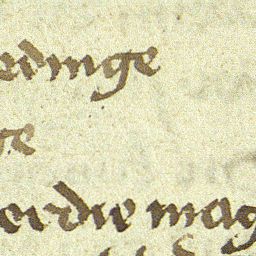 edinge
ge
erdie mag